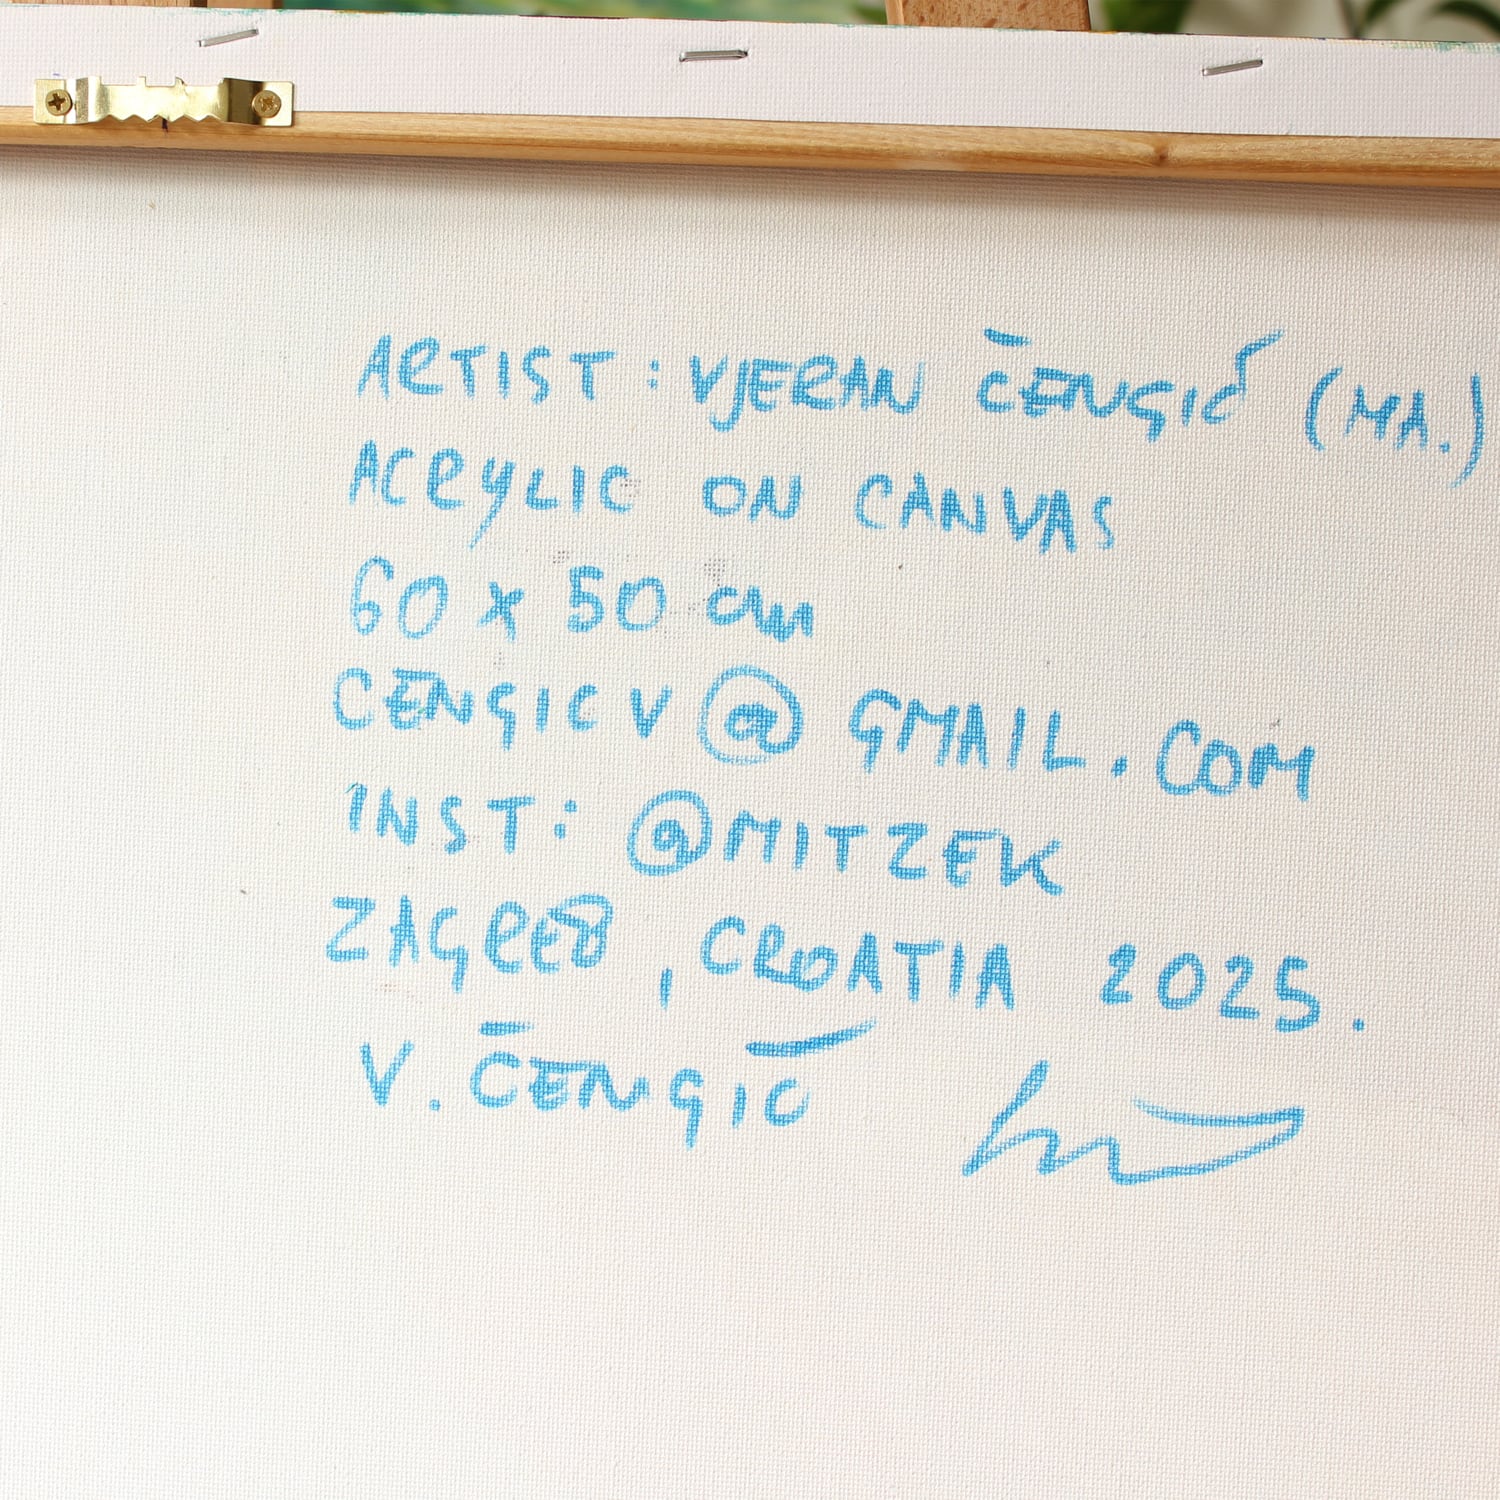 ARTIST: VJERAN ČENGIĆ (MA.)
ACRYLIC ON CANVAS
60 x 50 cm
CENGICV@GMAIL.COM
INST: @MITZEK
ZAGREB, CROATIA 2025.
V. ČENGIĆ